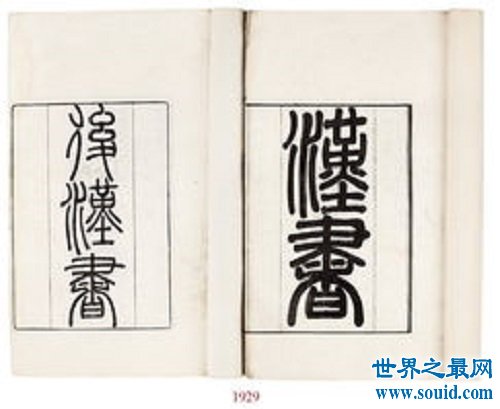 後漢書
漢書
1929
世界之最网
www.souid.com